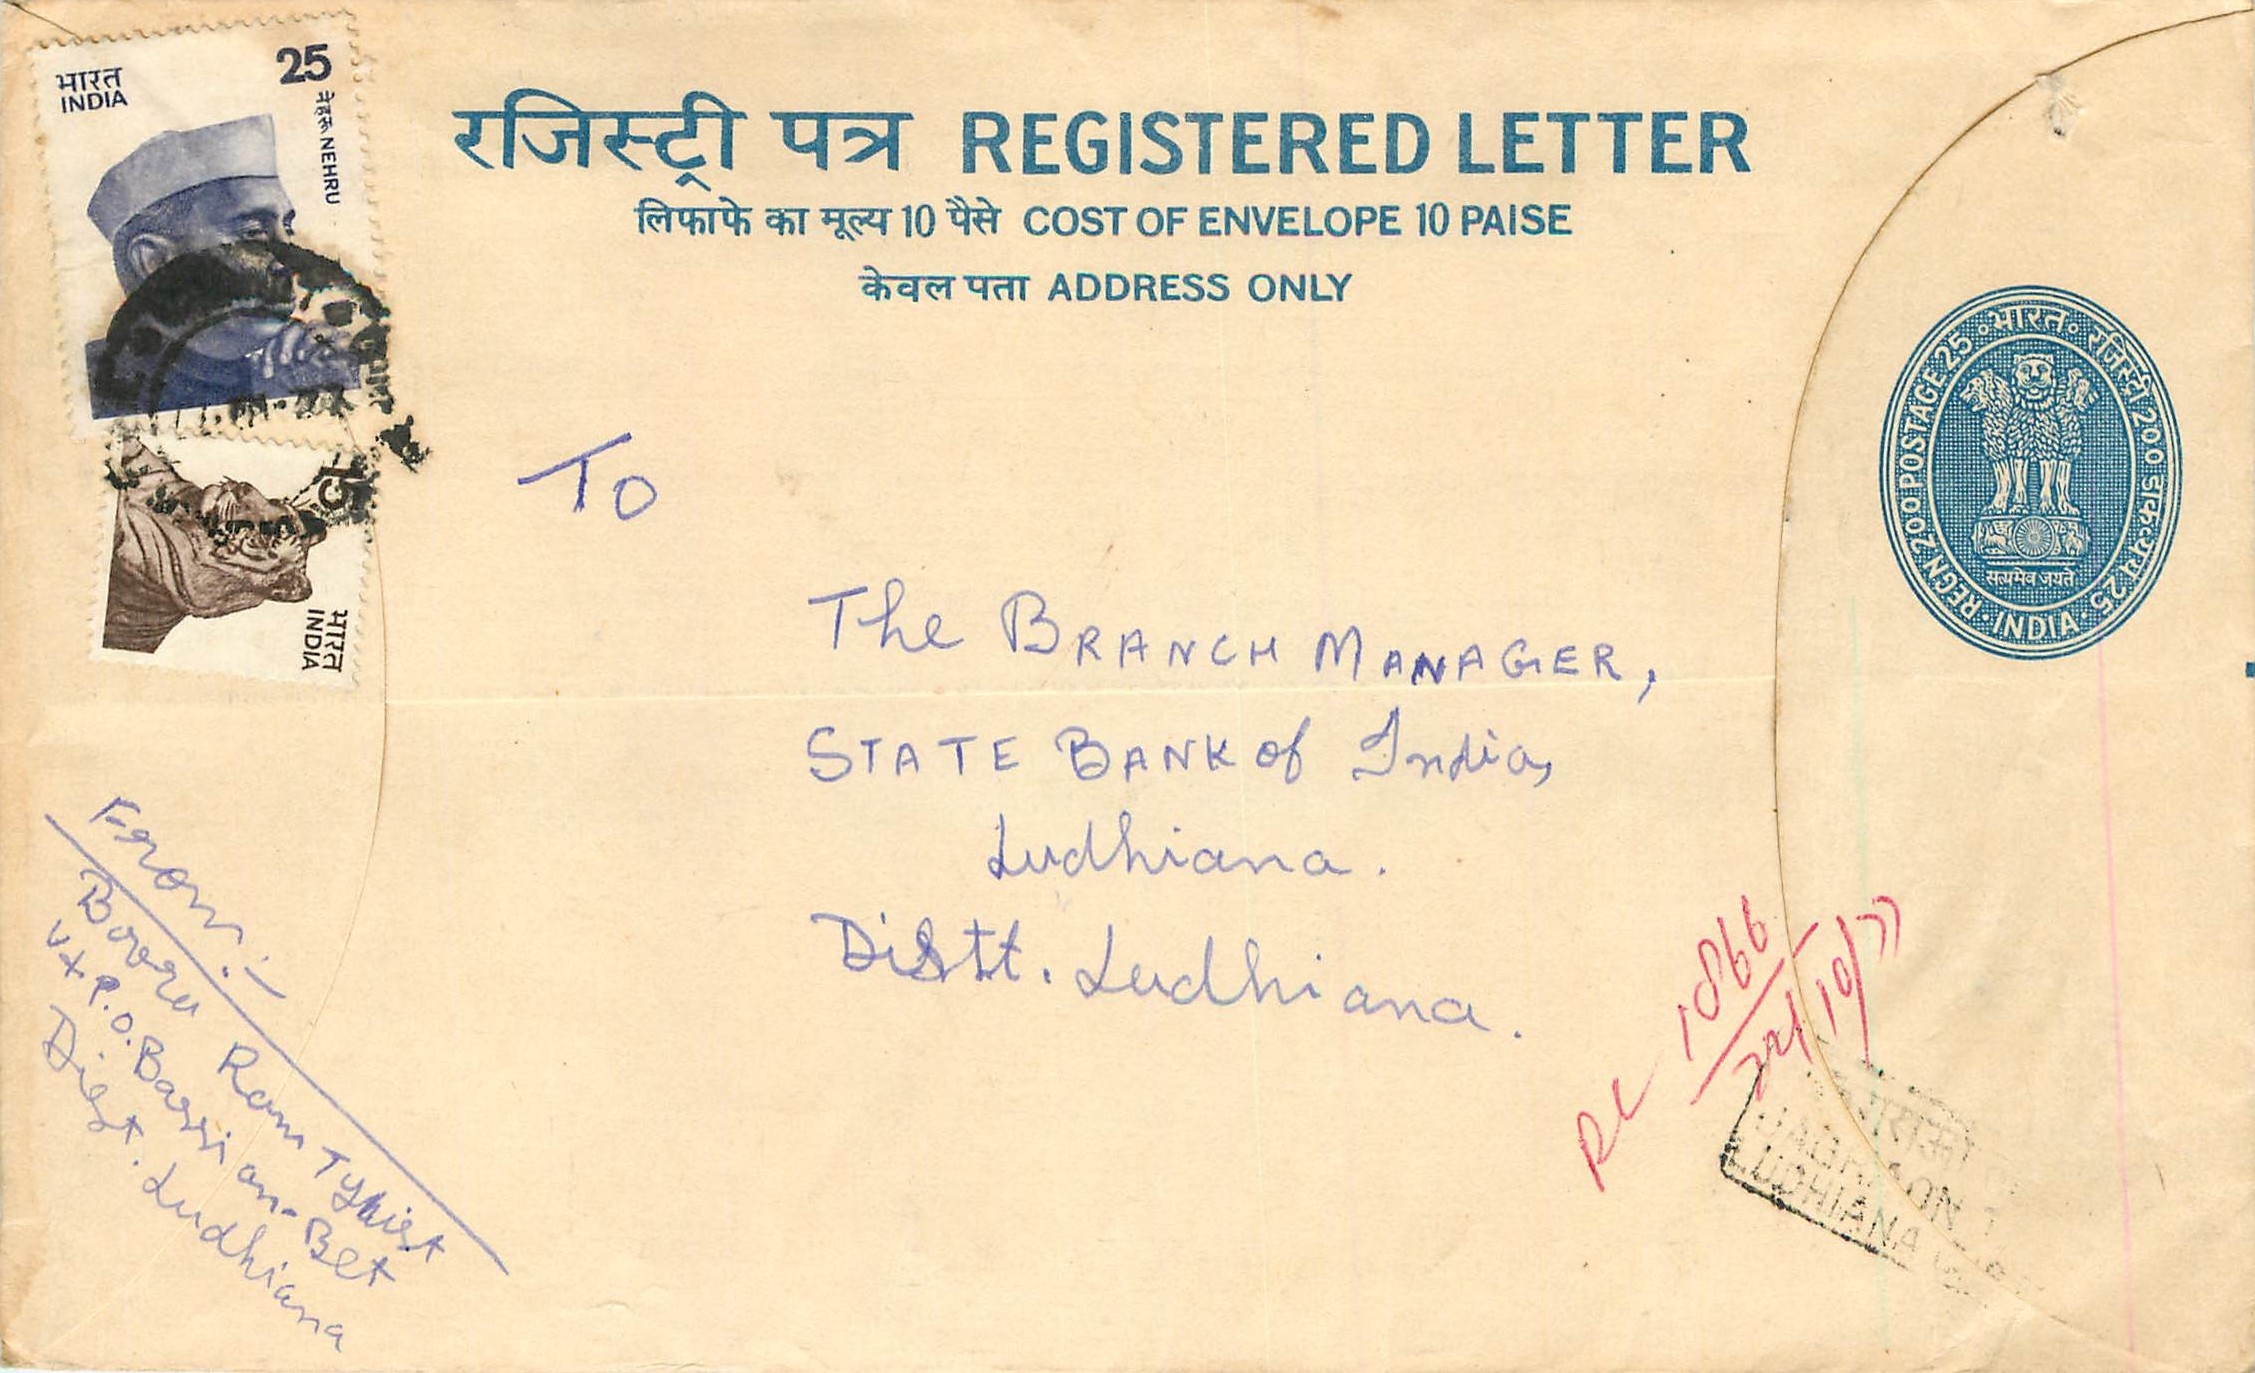 भारत
INDIA
25
नेहरू NEHRU
15
भारत
INDIA
रजिस्ट्री पत्र REGISTERED LETTER
लिफाफे का मूल्य 10 पैसे COST OF ENVELOPE 10 PAISE
केवल पता ADDRESS ONLY
भारत रजिस्ट्री 200 डाक-व्यय 25
REGN 200 POSTAGE 25
INDIA
सत्यमेव जयते
To
The BRANCH MANAGER,
STATE BANK of India,
Ludhiana.
Distt. Ludhiana.
From:-
Ram Typist
V&P.O. Bassian-Bet
Dist. Ludhiana
RL 10866
10/77
LUDHIANA